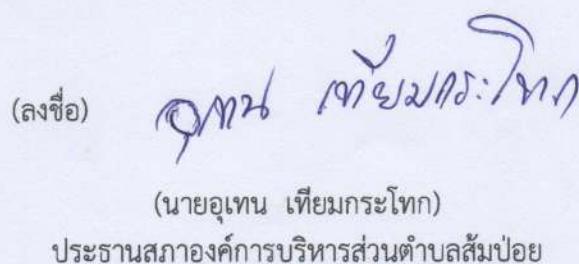 (ลงชื่อ) อุเทน เทียมกระโทก
(นายอุเทน เทียมกระโทก)
ประธานสภาองค์การบริหารส่วนตำบลส้มป่อย